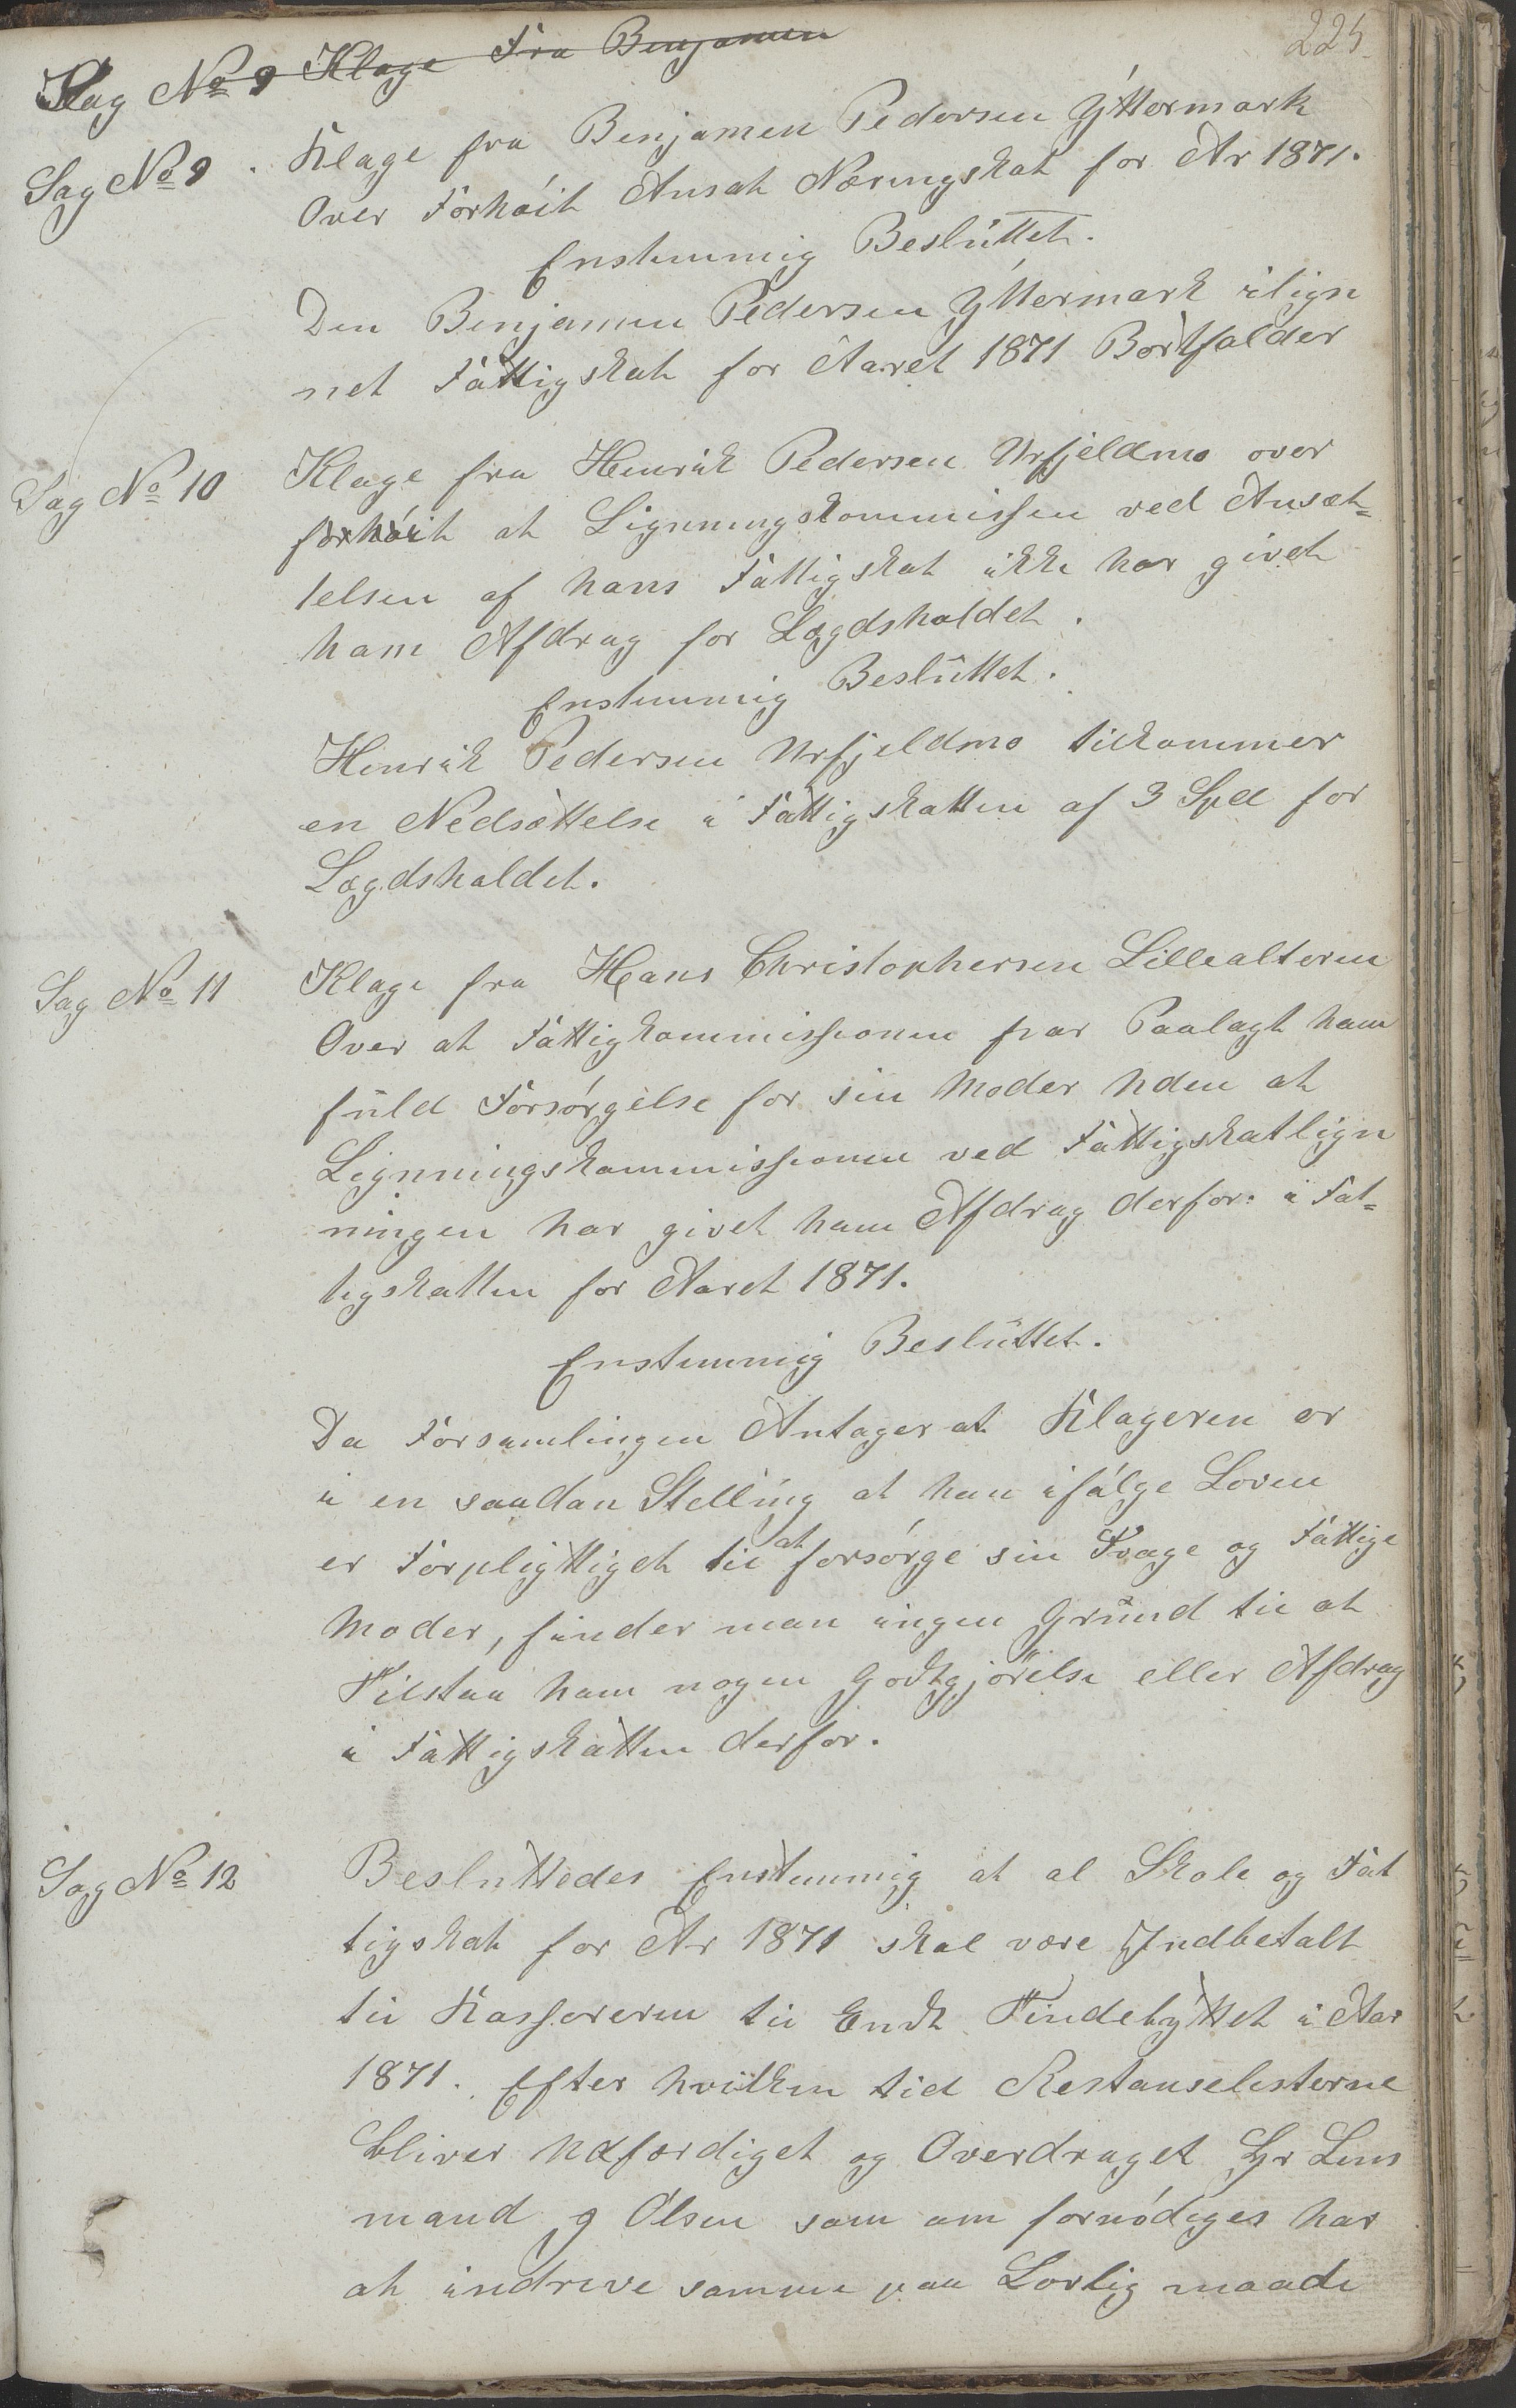 225
Sag No 9 Klage Fra Benjamin
Sag No 9. Klage fra Benjamen Pedersen Yttermark
Over Forhöit Ansat Næringskat for Ar 1871.
Enstemmig Besluttet.
Den Benjamen Pedersen Yttermark ilign
net Fattigskat for Aaret 1871 Bortfalder
Sag No 10 Klage fra Henrik Pedersen Urfjeldmo over
forhöit at Lignningskommissen ved Ansæt=
telsen af hans Fattigskat ikke har givet
ham Afdrag for Lægdsholdet.
Enstemmig Besluttet.
Henrik Pedersen Urfjeldmo tilkommer
en Nedsættelse i Fattigskatten af 3 Spd for
Lægdsholdet.
Sag No 11 Klage fra Hans Christophersen Lillealteren
Over at Fattigkommissionen har Paalagt ham
fuld Forsörgelse for sin Moder uden at
Lignningskommissionen ved Fattigskatlign
ningen har givet ham Afdrag derfor i Fat=
tigskatten for Aaret 1871.
Enstemmig Besluttet.
Da Forsamlingen Antager at Klageren er
i en saadan Stelling at han ifölge Loven
er Forpligttiget til at forsörge sin Svage og Fattige
Moder, finder man ingen Grund til at
Tilstaa ham nogen Godtgjörelse eller Afdrag
i Fattigskatten derfor.
Sag No 12 Besluttedes Enstemmig at al Skole og Fat
tigskat for Ar 1871 skal være Indbetalt
til Kassereren til Endt Tindebyttet i Aar
1871. Efter hvilken tid Restanselisterne
bliver Udfærdiget og Overdraget Hr Lens
mand J Olsen som om fornödiges har
at indrive samme paa Lovlig maade